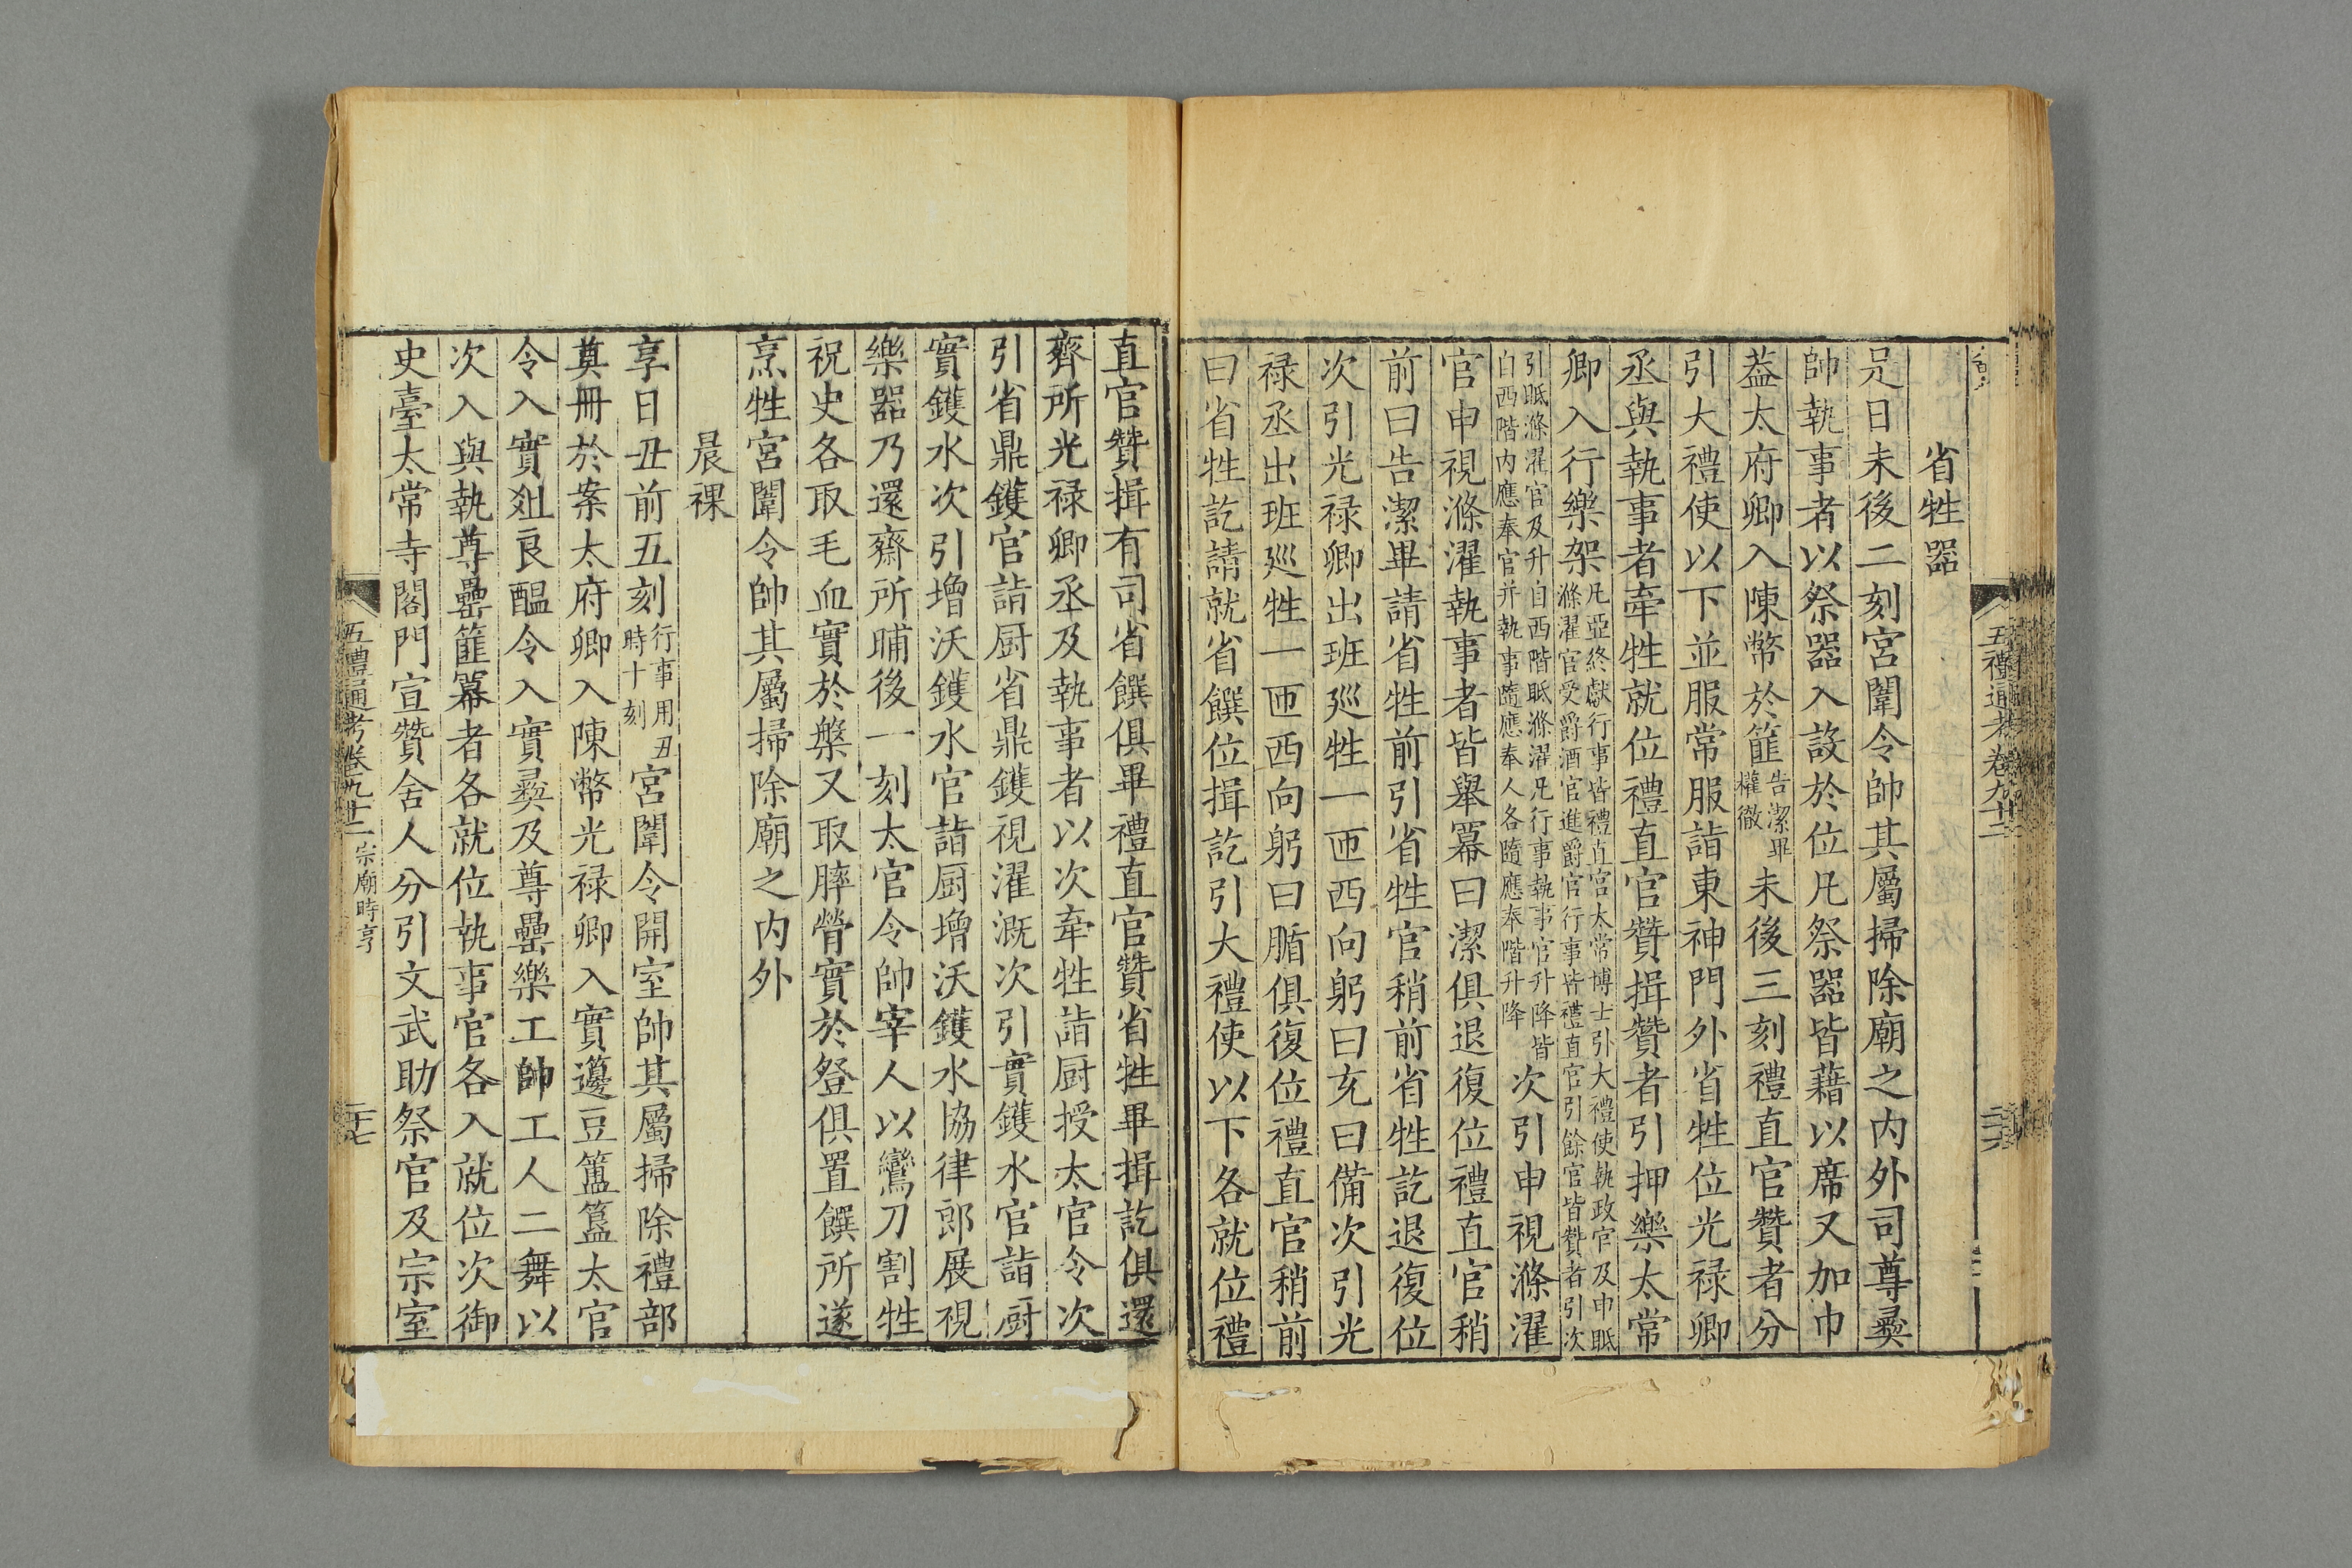 五禮通考卷九十二
省牲器
是日未後二刻宮闈令帥其屬掃除廟之內外司尊彝
帥執事者以祭器入設於位凡祭器皆藉以席又加巾
蓋太府卿入陳幣於篚告潔畢權徹未後三刻禮直官贊者分
引大禮使以下並服常服詣東神門外省牲位光祿卿
丞與執事者牽牲就位禮直官贊揖贊者引押樂太常
卿入行樂架凡亞終獻行事皆禮直官太常博士引大禮使執政官及申眡滌濯官受爵酒官進爵官行事皆禮直官引餘官皆贊者引次
引眡滌濯官及升自西階眡滌濯凡行事執事官升降皆自西階內應奉官并執事隨應奉人各隨應奉階升降次引申視滌濯
官申視滌濯執事者皆舉冪曰潔俱退復位禮直官稍
前曰告潔畢請省牲前引省牲官稍前省牲訖退復位
次引光祿卿出班巡牲一匝西向躬曰充曰備次引光
祿丞出班巡牲一匝西向躬曰腯俱復位禮直官稍前
曰省牲訖請就省饌位揖訖引大禮使以下各就位禮
直官贊揖有司省饌俱畢禮直官贊省牲畢揖訖俱還
齊所光祿卿丞及執事者以次牽牲詣厨授太官令次
引省鼎鑊官詣厨省鼎鑊視濯溉次引實鑊水官詣厨
實鑊水次引增沃鑊水官詣厨增沃鑊水協律郎展視
樂器乃還齋所晡後一刻太官令帥宰人以鸞刀割牲
祝史各取毛血實於槃又取膟膋實於登俱置饌所遂
烹牲宮闈令帥其屬掃除廟之內外
晨祼
享日丑前五刻行事用丑時十刻宮闈令開室帥其屬掃除禮部
奠冊於案太府卿入陳幣光祿卿入實籩豆簠簋太官
令入實俎良醞令入實彝及尊罍樂工帥工人二舞以
次入與執尊罍篚冪者各就位執事官各入就位次御
史臺太常寺閤門宣贊舍人分引文武助祭官及宗室
五禮通考卷九十二 宗廟時享
二十七